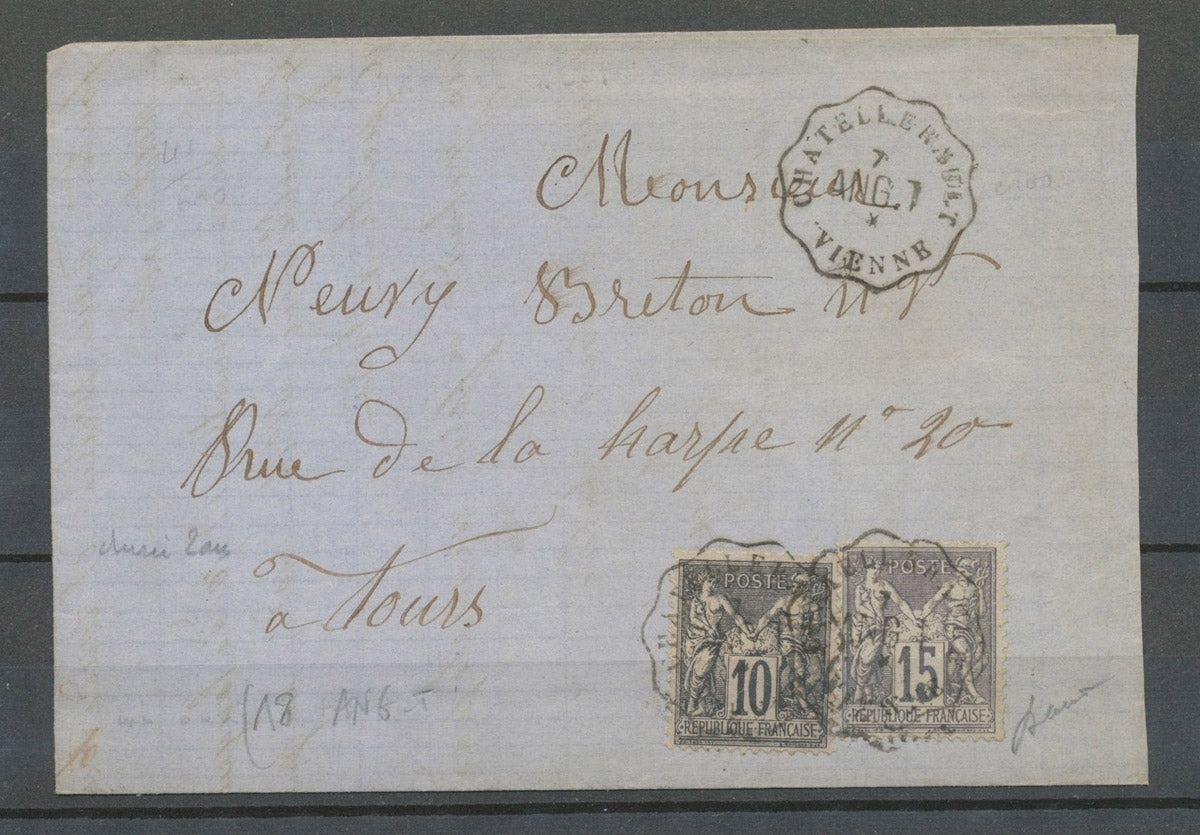 CHATELLERAULT
7
ANG. 1
*
VIENNE
Monsieur
Neuvy Breton
Rue de la harpe n° 20
a Tours
(18 ANG-
POSTE
10
REPUBLIQUE FRANÇAISE
POSTE
15
REPUBLIQUE FRANÇAISE